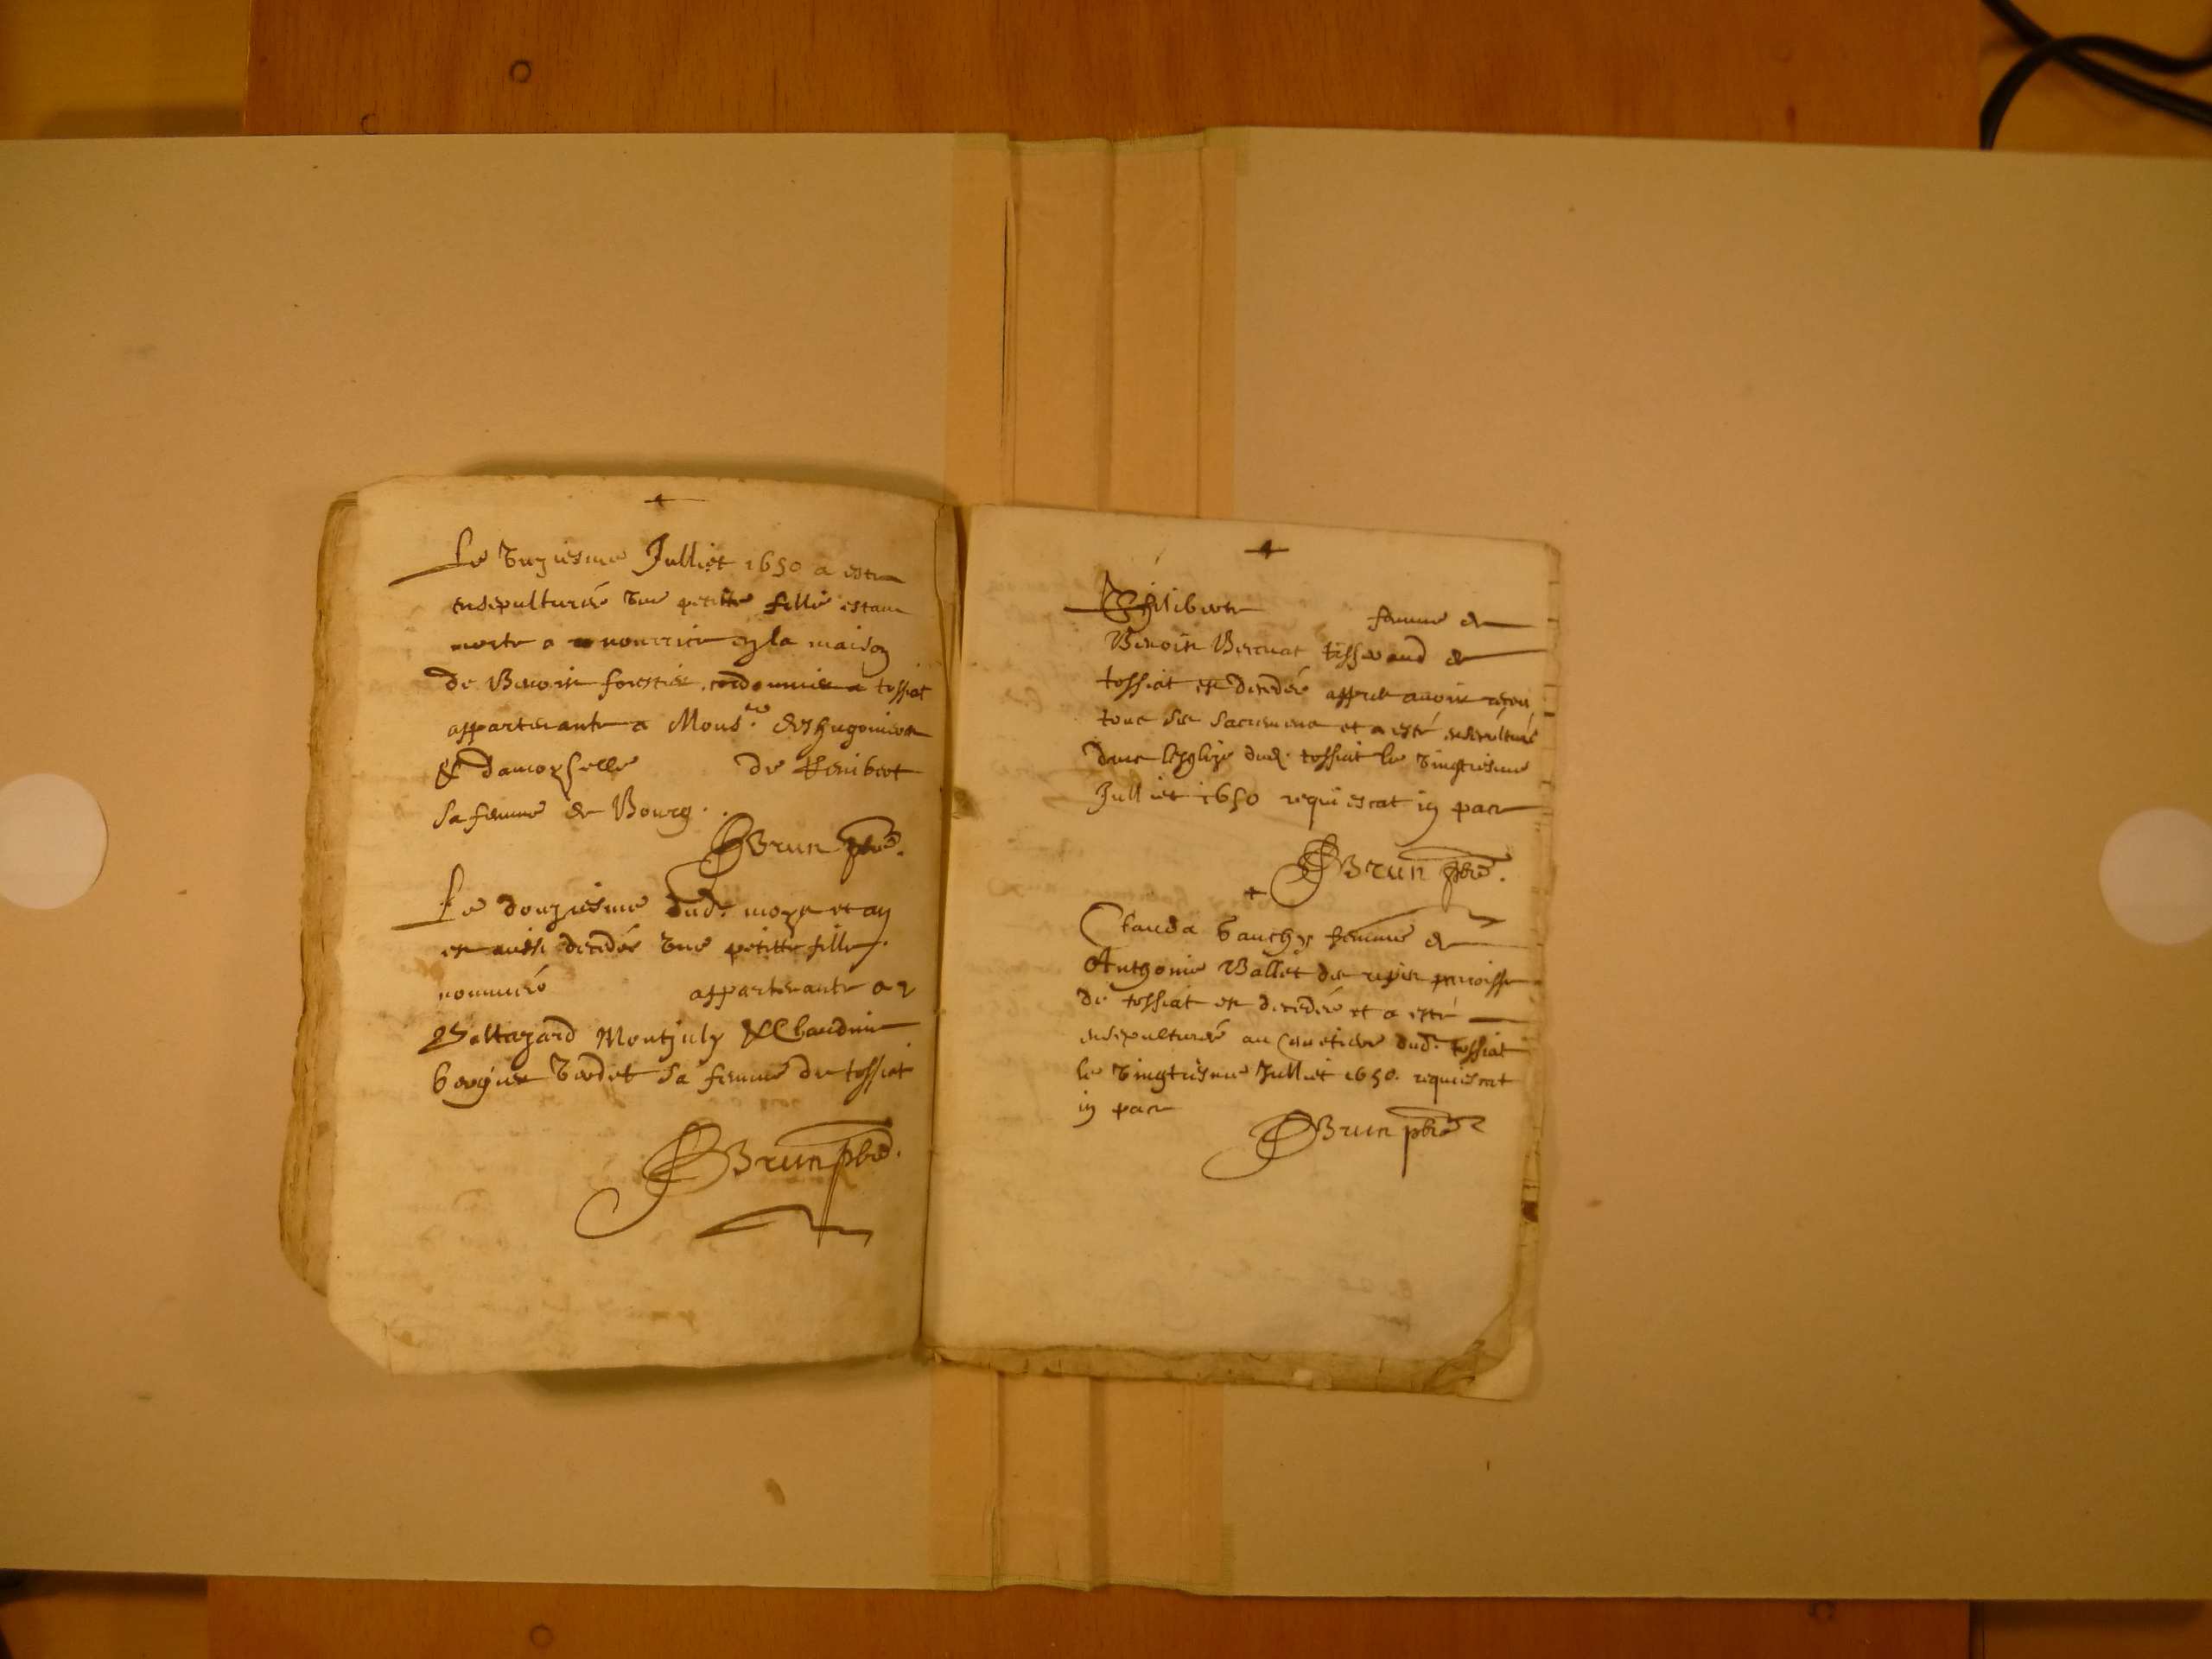 Le unziesme Julliet 1650 a este
ensepulturée une petitte fille estant
morte a nourrice en la maison
de Benoist forestier cordonnier a tossiat
appartenante a Mons.r deshugonieres
& damoyselle de
sa femme de Bourg.
Brun pbre.
Le douziesme dud. moys et an
est aussi decedée une petitte fille
nommée appartenante a
Baltazard Montjuly & Claudine
sa femme de tossiat
Brun pbre.
Philiberte femme de
Benoist Bernat tisserand de
tossiat est decedée appres avoir receu
tous ses sacremens et a esté ensepulturé
dans lesglize dud. tossiat le vingtiesme
Julliet 1650 requiescat in pace
Brun pbre.
Clauda femme de
Anthoine Ballet de parroisse
de tossiat est decedée et a esté
ensepulturée au cemetiere dud. tossiat
le vingtiesme Julliet 1650. requiescat
in pace
Brun pbre